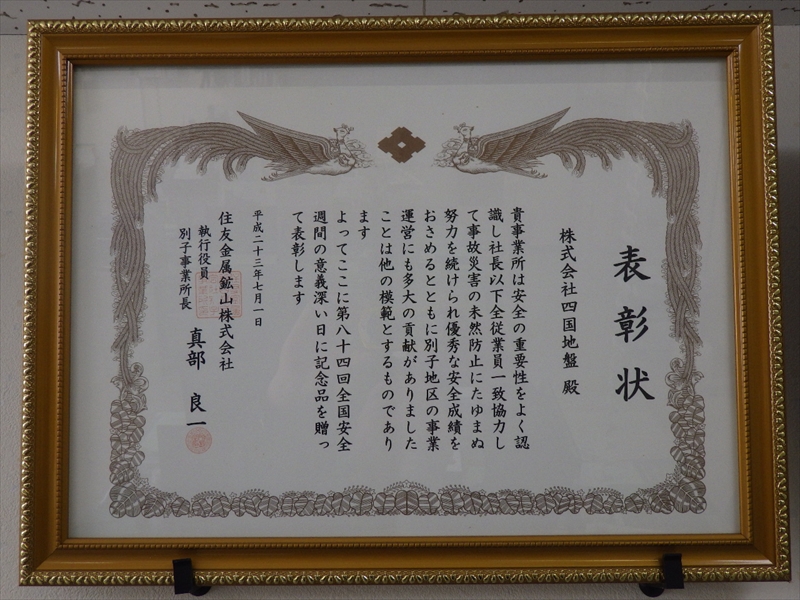 表彰状
株式会社四国地盤 殿
貴事業所は安全の重要性をよく認
識し社長以下全従業員一致協力し
て事故災害の未然防止にたゆまぬ
努力を続けられ優秀な安全成績を
おさめるとともに別子地区の事業
運営にも多大の貢献がありました
ことは他の模範とするものであり
ます
よってここに第八十四回全国安全
週間の意義深い日に記念品を贈っ
て表彰します
平成二十三年七月一日
住友金属鉱山株式会社
執行役員
別子事業所長
真部 良一